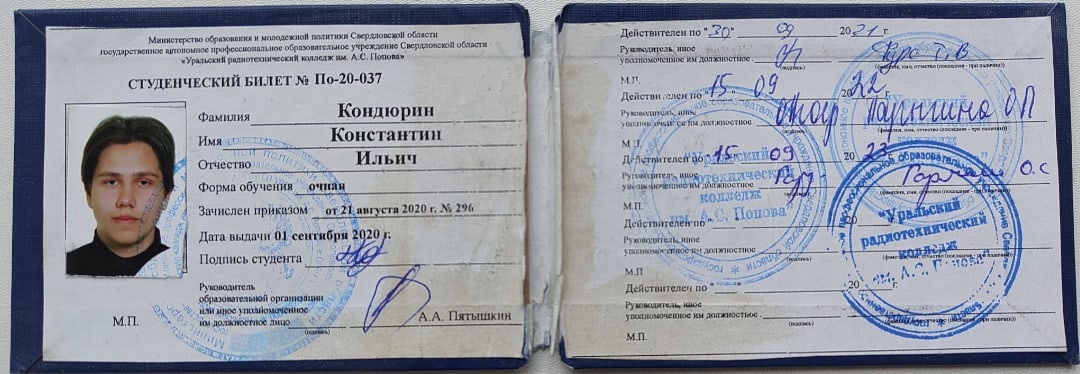 Министерство образования и молодежной политики Свердловской области
государственное автономное профессиональное образовательное учреждение Свердловской области
«Уральский радиотехнический колледж им. А.С. Попова»
СТУДЕНЧЕСКИЙ БИЛЕТ № По-20-037
Фамилия Кондюрин
Имя Константин
Отчество Ильич
Форма обучения очная
Зачислен приказом от 21 августа 2020 г. № 296
Дата выдачи 01 сентября 2020 г.
Подпись студента
Руководитель
образовательной организации
или иное уполномоченное
им должностное лицо
(подпись)
А.А. Пятышкин
М.П.
Действителен по "30" 09 2021 г.
Руководитель, иное
уполномоченное им должностное
(подпись) (фамилия, имя, отчество (последнее - при наличии))
М.П.
Действителен по "15" 09 2022
Руководитель, иное
уполномоченное им должностное
(фамилия, имя, отчество (последнее - при наличии))
М.П.
Действителен по "15 09 2023
Руководитель, иное
уполномоченное им должностное
О.С
М.П.
Действителен по "
20
Руководитель, иное
уполномоченное им должностное
(подпись)
М.П
Действителен по "
20 г.
Руководитель, иное
уполномоченное им должностное
(подпись)
М.П.
"Уральский
радиотехнический
колледж
им. А.С. Попова"
"Уральский
радиотехнический
колледж
им. А.С. Попова"